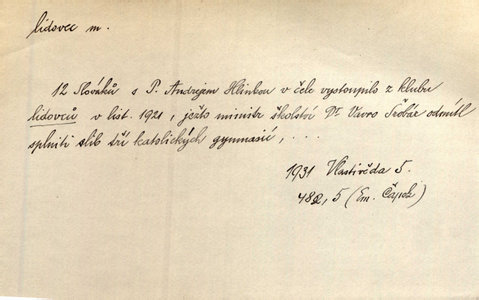 lidovec m.
12 Slováků s P. Andrejem Hlinkou v čele vystoupilo z klubu
lidovců v list. 1921, ježto ministr školství Dr Vavro Šrobár odmítl
splniti slib tří katolických gymnasií, . . .
1931 Vlastivěda 5.
482, 5 (Em. Čapek)